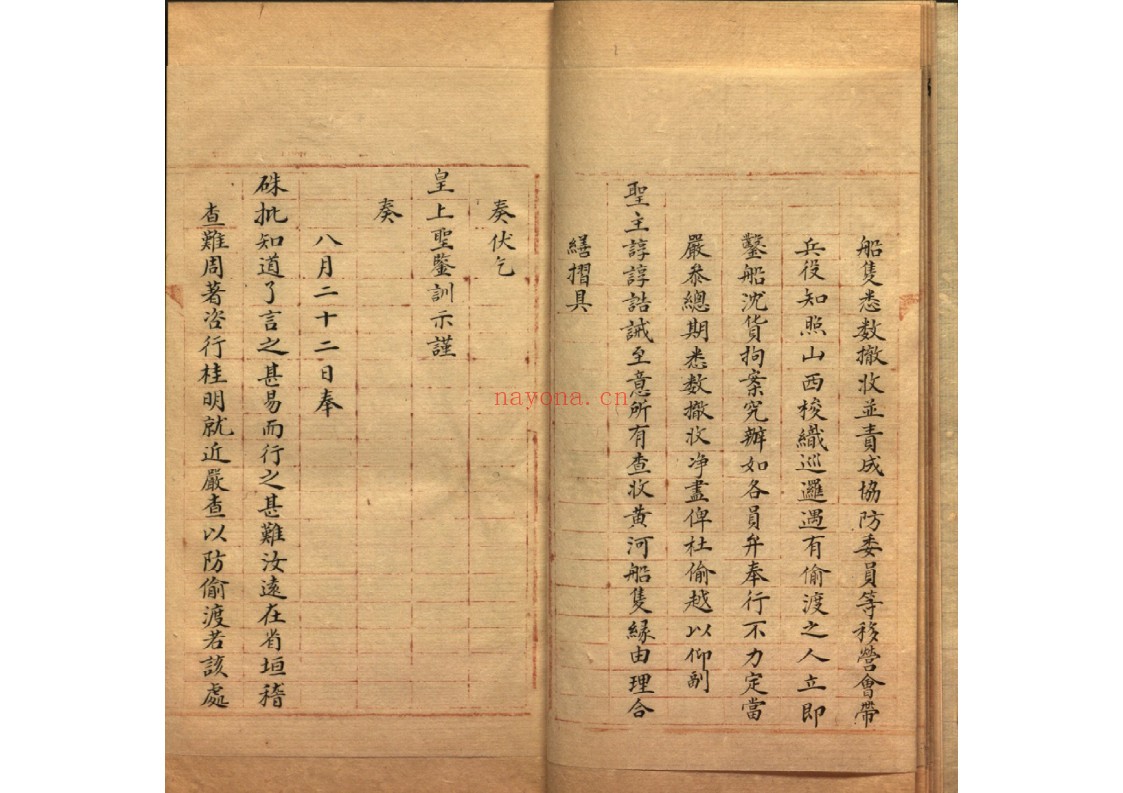 船隻悉數撤收並責成協防委員等移營會帶
兵役知照山西梭織巡邏遇有偷渡之人立即
鑿船沈貨拘案究辦如各員弁奉行不力定當
嚴叅總期悉數撤收净盡俾杜偷越以仰副
聖主諄諄誥誡至意所有查收黄河船隻緣由理合
繕摺具
奏伏乞
皇上聖鑒訓示謹
奏
八月二十二日奉
硃批知道了言之甚易而行之甚難汝遠在省垣稽
查難周著咨行桂明就近嚴查以防偷渡若該處
nayona.cn